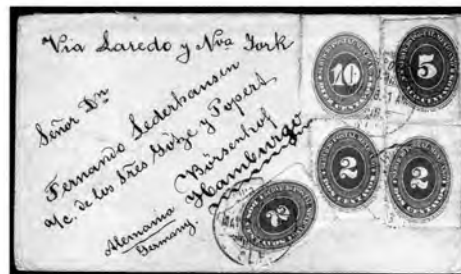 Via Laredo y Nva York
Señor Dn
Fernando Lederhausen
a/c. de los Sres Götze y Popert
Börsenhof
Hamburgo
Alemania
Germany.
10
5
2
2
2